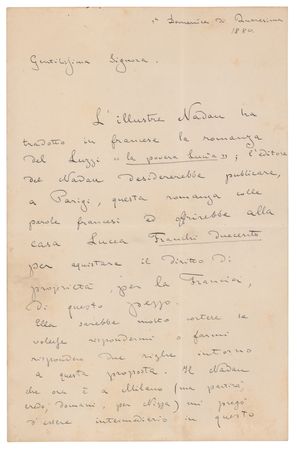 1ª Domenica di Quaresima
1880.
Gentilissima Signora.
L'illustre Nadau ha
tradotto in francese la romanza
del Luzzi "la povera Lucia"; l'Editore
del Nadau desidererebbe publicare,
a Parigi, questa romanza colle
parole francesi e offrirebbe alla
casa Lucca Franchi duecento
per aquistare il diritto di
proprietà, per la Francia,
di questo pezzo.
Ella sarebbe molto cortese se
volesse rispondermi o farmi
rispondere due righe intorno
a questa proposta. Il Nadau
che ora è a Milano (ma partirà
credo, domani, per Nizza) mi pregò
d'essere intermediario in questo